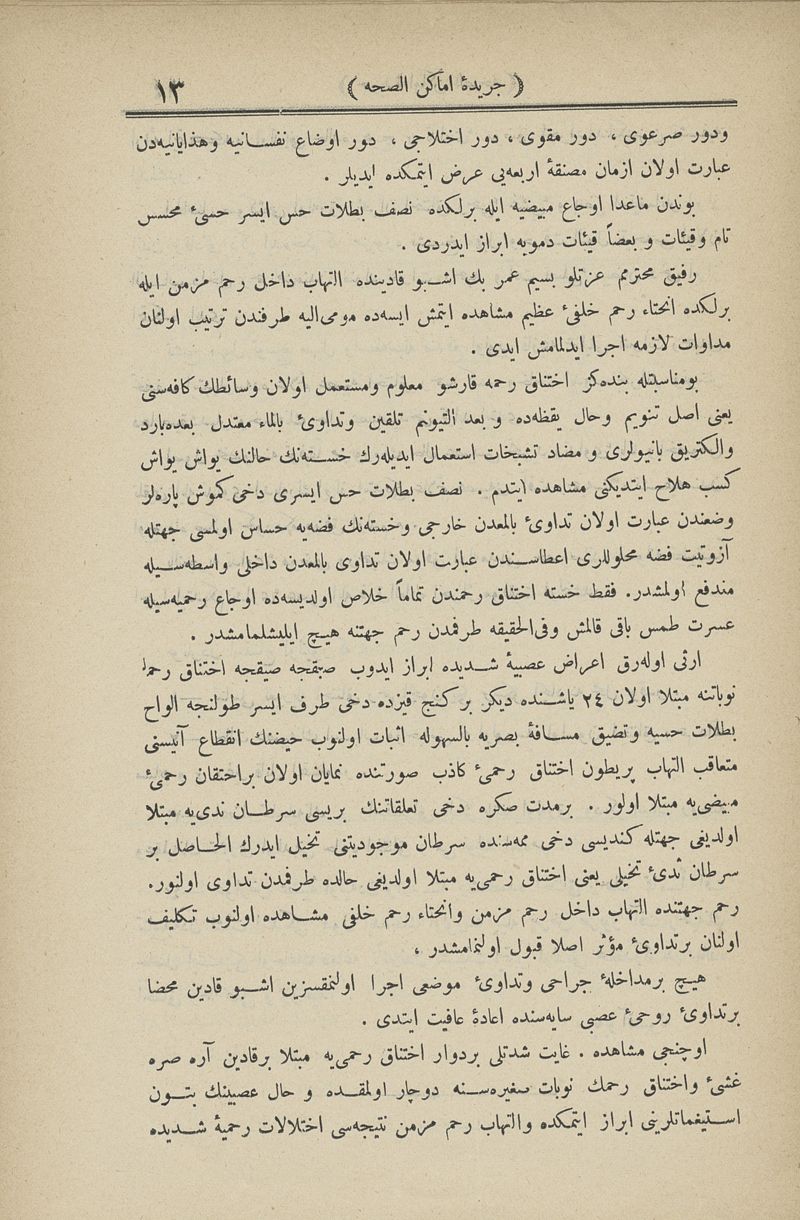 ( جريدۀ اماكن الصحه ) ١٣
ودور صرعوى ، دور مقوى ، دور اختلاجى ، دور اوضاع نفسـانيه وهذايانيه‌دن
عبارت اولان ازمان مصنفۀ اربعه‌يى عرض ايتمكده ايديلر .
بوندن ماعدا اوجاع مبيضيه ايله برلكده نصف بطلات حس ايسر حسىٔ محسس
تام وقيئات و بعضاً قيئات دمويه ابراز ايدردى .
رفيق محترمم عزتلو بسيم عمر بك اشـبو قادينده التهاب داخل رحم مزمن ايله
برلكده انحناء رحم خلفىٔ عظيم مشاهده ايتمش ايسه‌ده مومى‌اليه طرفندن ترتيب اولنان
مداوات لازمه اجرا ايدلمامش ايدى .
بومناسبتله بنده‌كز اختناق رحمه قارشو معلوم ومستعمل اولان وسائطك كافه‌سنى
يعنى اصل تنويم وحال يقظه‌ده و بعد التنويم تلقين وتداوىٔ بالماء معتدل بعده‌بارد
والكتريق بانيولرى و مضاد تشبخات استعمال ايديله‌رك خسـته‌نك حالنك يواش يواش
كسب هلاح ايتديكنى مشاهده ايتدم . نصف بطلات حس ايسرى دخى كموش پاره‌لر
وضعندن عبارت اولان تداوىٔ بالمعدن خارجى وخسته‌نك فضه‌يه حساس اولمسى جهتله
آزوتيت فضه محلوللرى اعطاسـندن عبارت اولان تداوى بالمعدن داخلى واسطه‌سـيله
مندفع اولمشدر. فقط خسته اختناق رحمندن تماماً خلاص اولديسه‌ده اوجاع رحميه‌سيله
عسرت طمس باقى قالمش وفى‌الحقيقه طرفمدن رحم جهتنه هيچ ايليشلمامشدر .
ارثى اوله‌رق اعراض عصبيۀ شـديده ابراز ايدوب صيقجه صيقجه اختناق رحم
نوباتنه مبتلا اولان ٢٤ ياشـنده ديكر بر كنج قيزده دخى طرف ايسر طولنجه الواح
بطلات حسيه وتضيق مسـافۀ بصريه بالسهوله اثبات اولنوب حيضنك انقطاع آنيسنى
متعاقب التهاب پريطون اختناق رحمىٔ كاذب صورتنده نمايان اولان براحتقان رحمىٔ
مبيضى‌يه مبتلا اولور . برمدت صكره دخى تعلقاتنك بريسى سرطـان ثدى‌يه مبتلا
اولديغى جهتله كنديسى دخى ممه‌سنده سرطان موجوديتنى تخيل ايدرك الحـاصل بر
سرطان ثدىٔ تخيلى يعنى اختناق رحمى‌يه مبتلا اولديغى حالده طرفمدن تداوى اولنور.
رحم جهتنده التهاب داخل رحم مزمن وانحناء رحم خلفى مشـاهده اولنوب تكليف
اولنان برتداوىٔ مؤثر اصلا قبول اولنمامشدر ،
هيچ برمداخلۀ جراحى وتداوىٔ موضعى اجرا اولنمقسزين اشـبو قادين محضا
برتداوىٔ روحىٔ عصبى سايه‌سنده اعادۀ عافيت ايتدى .
اوچنجى مشاهده . غايت شدتلى بردوار اختناق رحمى‌يه مبتلا برقادين آره صره
غشىٔ واختناق رحمك نوبات صغيره‌سـنه دوچار اولمقـده و حال عصبينك بتـون
اسـتيغماتلرينى ابراز ايتمكده والتهاب رحم مزمن نتيجه‌سى اختلالات رحميۀ شـديده